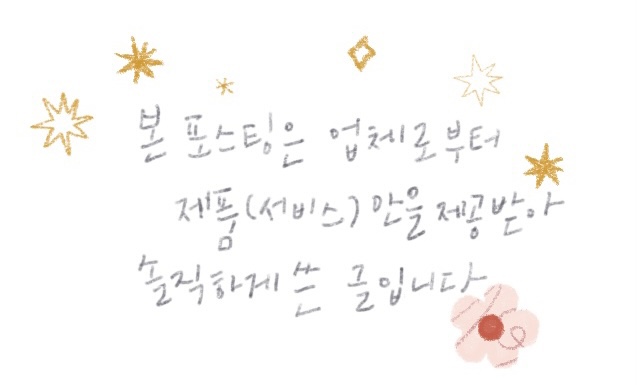 본 포스팅은 업체로부터
제품(서비스)만을 제공받아
솔직하게 쓴 글입니다